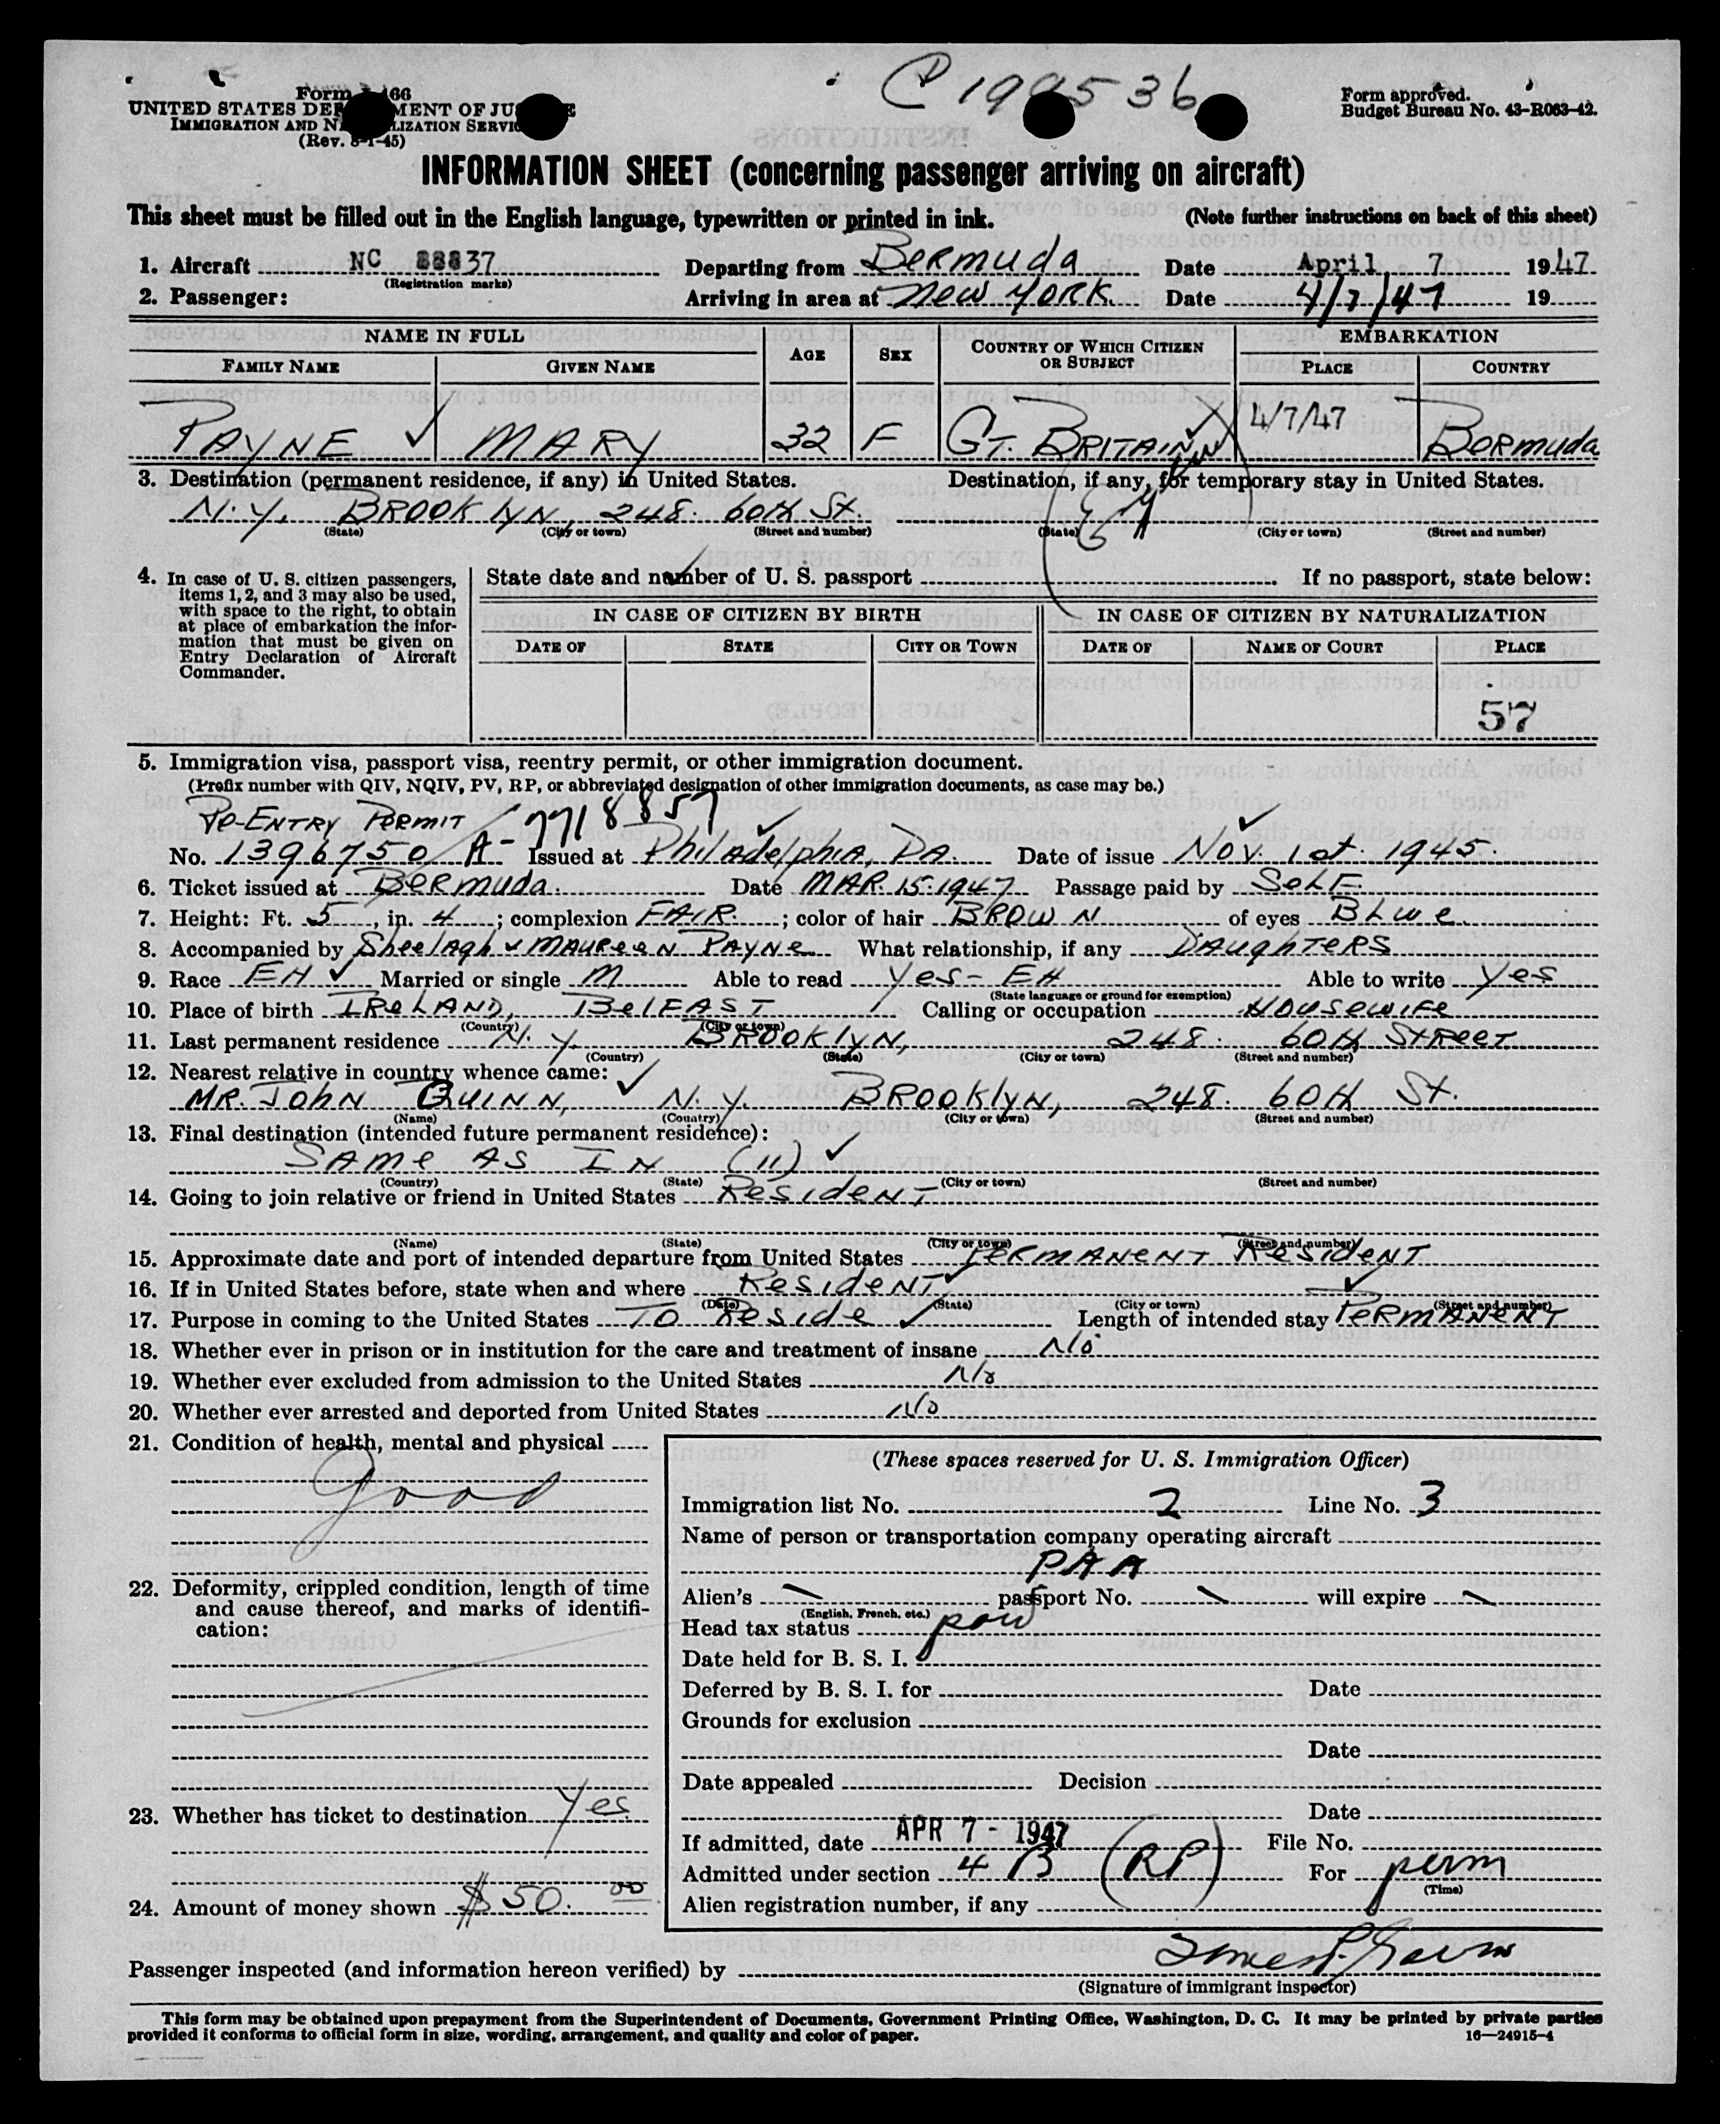 C 199536
Form I-466
UNITED STATES DEPARTMENT OF JUSTICE
IMMIGRATION AND NATURALIZATION SERVICE
(Rev. 8-1-45)
Form approved.
Budget Bureau No. 43-R063-42.
INFORMATION SHEET (concerning passenger arriving on aircraft)
This sheet must be filled out in the English language, typewritten or printed in ink. (Note further instructions on back of this sheet)
1. Aircraft NC 88837 Departing from Bermuda Date April 7 1947
(Registration marks)
2. Passenger: Arriving in area at New York Date 4/7/47 19
NAME IN FULL AGE SEX COUNTRY OF WHICH CITIZEN OR SUBJECT EMBARKATION
FAMILY NAME GIVEN NAME PLACE COUNTRY
PAYNE MARY 32 F GT. BRITAIN 4/7/47 Bermuda
3. Destination (permanent residence, if any) in United States. Destination, if any, for temporary stay in United States.
N.Y. BROOKLYN, 248. 60th St.
(State) (City or town) (Street and number) (State) (City or town) (Street and number)
4. In case of U. S. citizen passengers, items 1, 2, and 3 may also be used, with space to the right, to obtain at place of embarkation the information that must be given on Entry Declaration of Aircraft Commander.
State date and number of U. S. passport If no passport, state below:
IN CASE OF CITIZEN BY BIRTH IN CASE OF CITIZEN BY NATURALIZATION
DATE OF STATE CITY OR TOWN DATE OF NAME OF COURT PLACE
57
5. Immigration visa, passport visa, reentry permit, or other immigration document.
(Prefix number with QIV, NQIV, PV, RP, or abbreviated designation of other immigration documents, as case may be.)
Re-ENTRY PERMIT A-7718857
No. 1396750 Issued at Philadelphia, PA. Date of issue Nov. 1st. 1945.
6. Ticket issued at Bermuda. Date MAR. 15. 1947 Passage paid by SELF.
7. Height: Ft. 5, in. 4; complexion FAIR.; color of hair BROWN of eyes BLUE.
8. Accompanied by Sheelagh & MAUREEN PAYNE What relationship, if any DAUGHTERS
9. Race EH Married or single M Able to read Yes - EH Able to write Yes
(State language or ground for exemption)
10. Place of birth IRELAND, BELFAST Calling or occupation HOUSEWIFE
(Country) (City or town)
11. Last permanent residence N.Y. BROOKLYN, 248. 60th STREET
(Country) (State) (City or town) (Street and number)
12. Nearest relative in country whence came:
MR. JOHN QUINN, N.Y. BROOKLYN, 248. 60th St.
(Name) (Country) (City or town) (Street and number)
13. Final destination (intended future permanent residence):
SAME AS IN (11)
(Country) (State) (City or town) (Street and number)
14. Going to join relative or friend in United States RESIDENT
(Name) (State) (City or town) (Street and number)
15. Approximate date and port of intended departure from United States PERMANENT RESIDENT
16. If in United States before, state when and where RESIDENT
(Date) (State) (City or town) (Street and number)
17. Purpose in coming to the United States TO Reside Length of intended stay PERMANENT
18. Whether ever in prison or in institution for the care and treatment of insane No
19. Whether ever excluded from admission to the United States No
20. Whether ever arrested and deported from United States No
21. Condition of health, mental and physical
Good
22. Deformity, crippled condition, length of time and cause thereof, and marks of identification:
23. Whether has ticket to destination Yes
24. Amount of money shown $50.00
(These spaces reserved for U. S. Immigration Officer)
Immigration list No. 2 Line No. 3
Name of person or transportation company operating aircraft
PAA
Alien's passport No. will expire
(English, French, etc.)
Head tax status
Date held for B. S. I.
Deferred by B. S. I. for Date
Grounds for exclusion
Date
Date appealed Decision
Date
If admitted, date APR 7 - 1947 File No.
Admitted under section 4 B (RP) For perm
(Time)
Alien registration number, if any
Passenger inspected (and information hereon verified) by
(Signature of immigrant inspector)
This form may be obtained upon prepayment from the Superintendent of Documents, Government Printing Office, Washington, D. C. It may be printed by private parties
provided it conforms to official form in size, wording, arrangement, and quality and color of paper. 16—24915-4